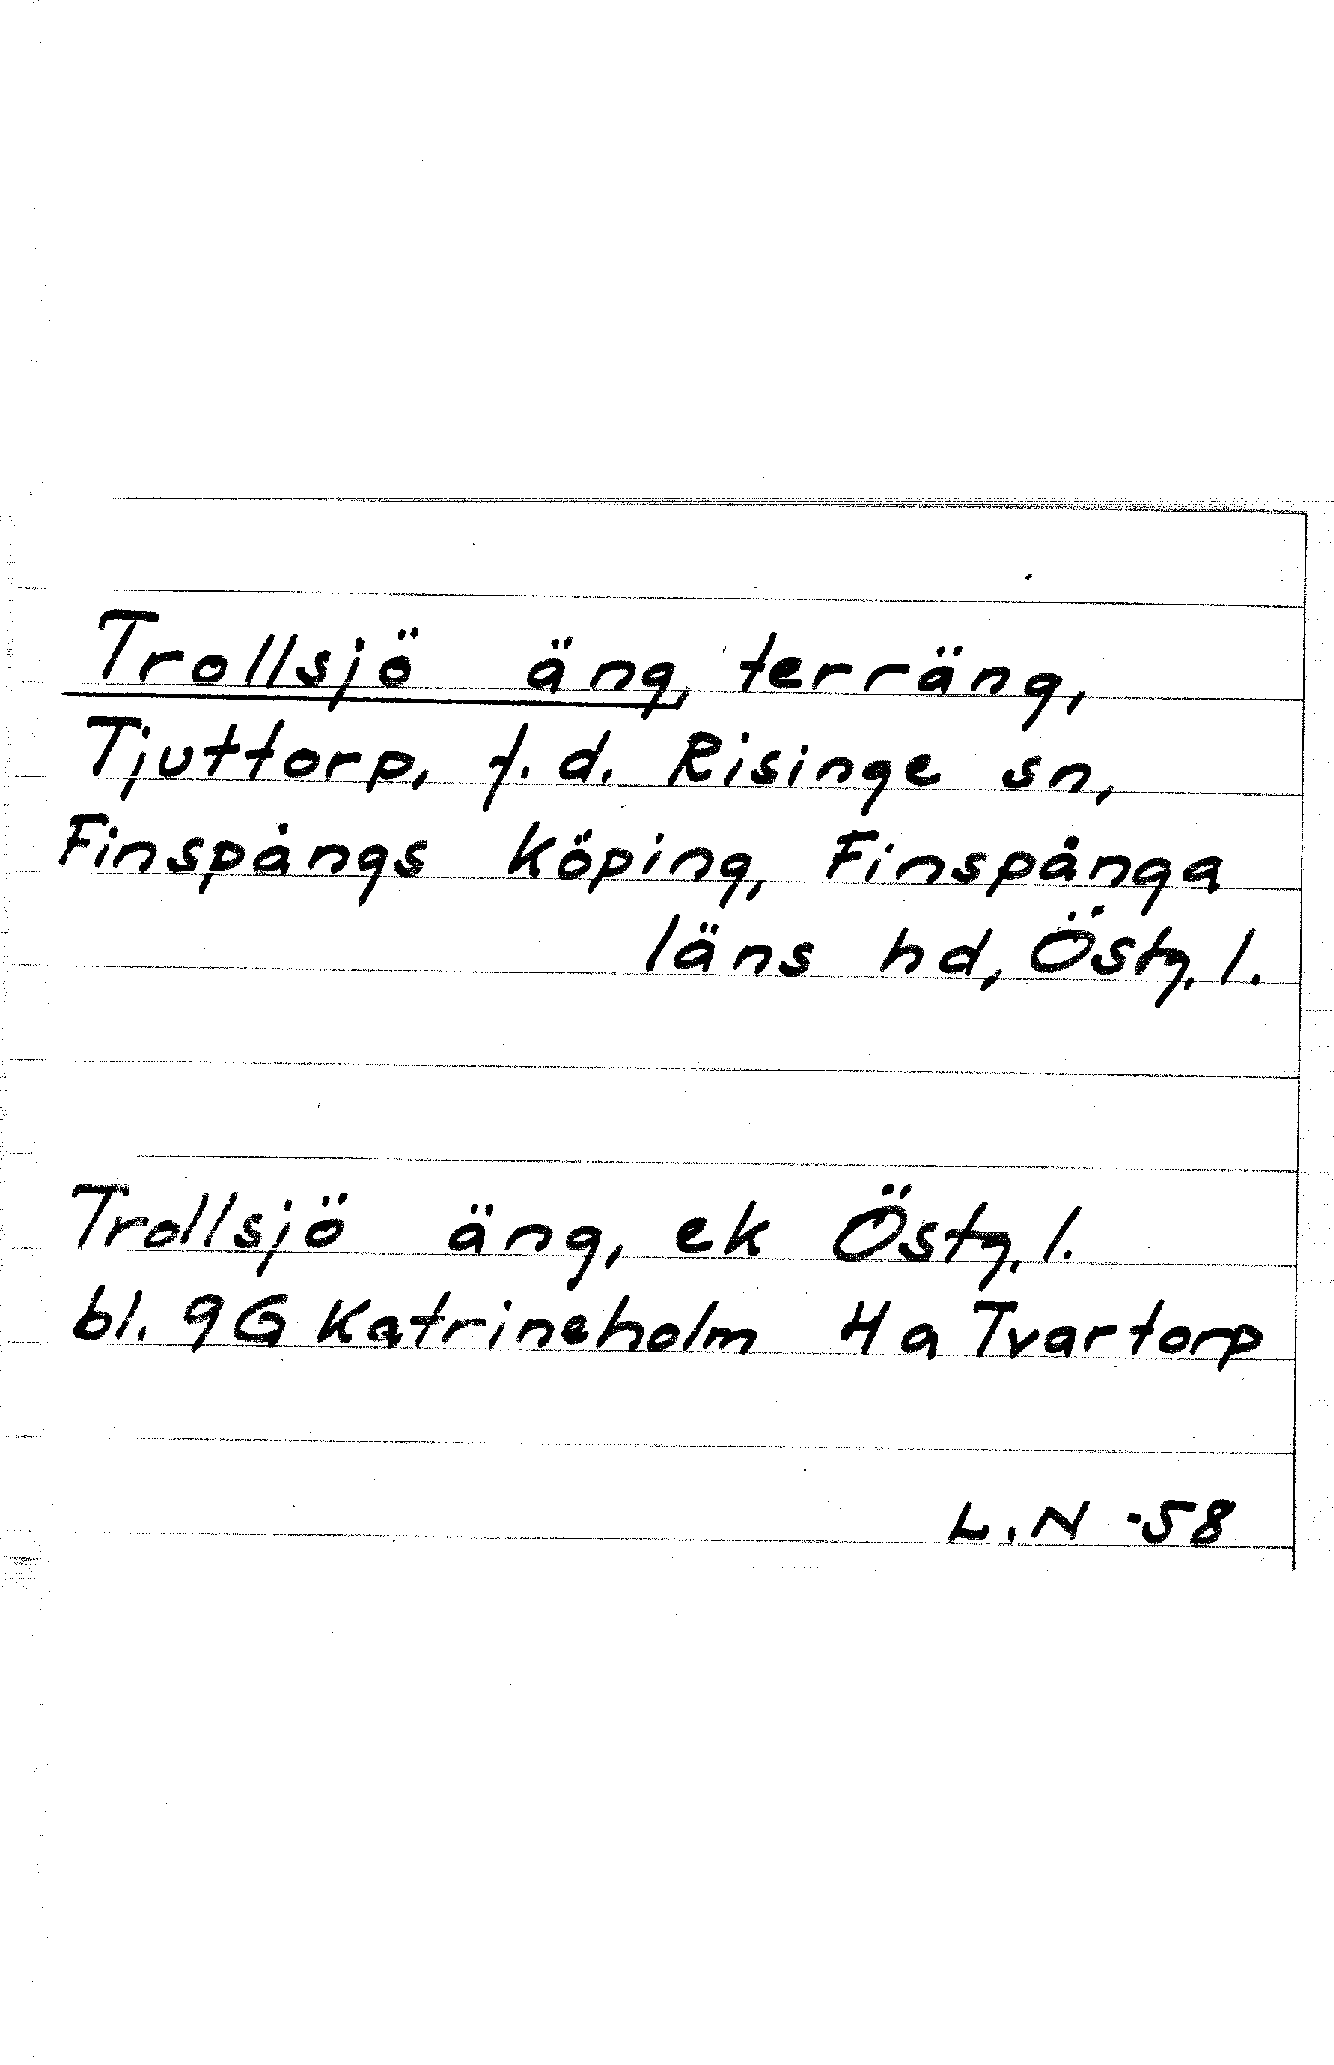 Trollsjö äng, terräng,
Tjuttorp, f.d. Risinge sn,
Finspångs köping, Finspånga
läns hd, Östg. l.
Trollsjö äng, ek Östg. l.
bl. 9G Katrineholm 4a Tvartorp
L.N -58